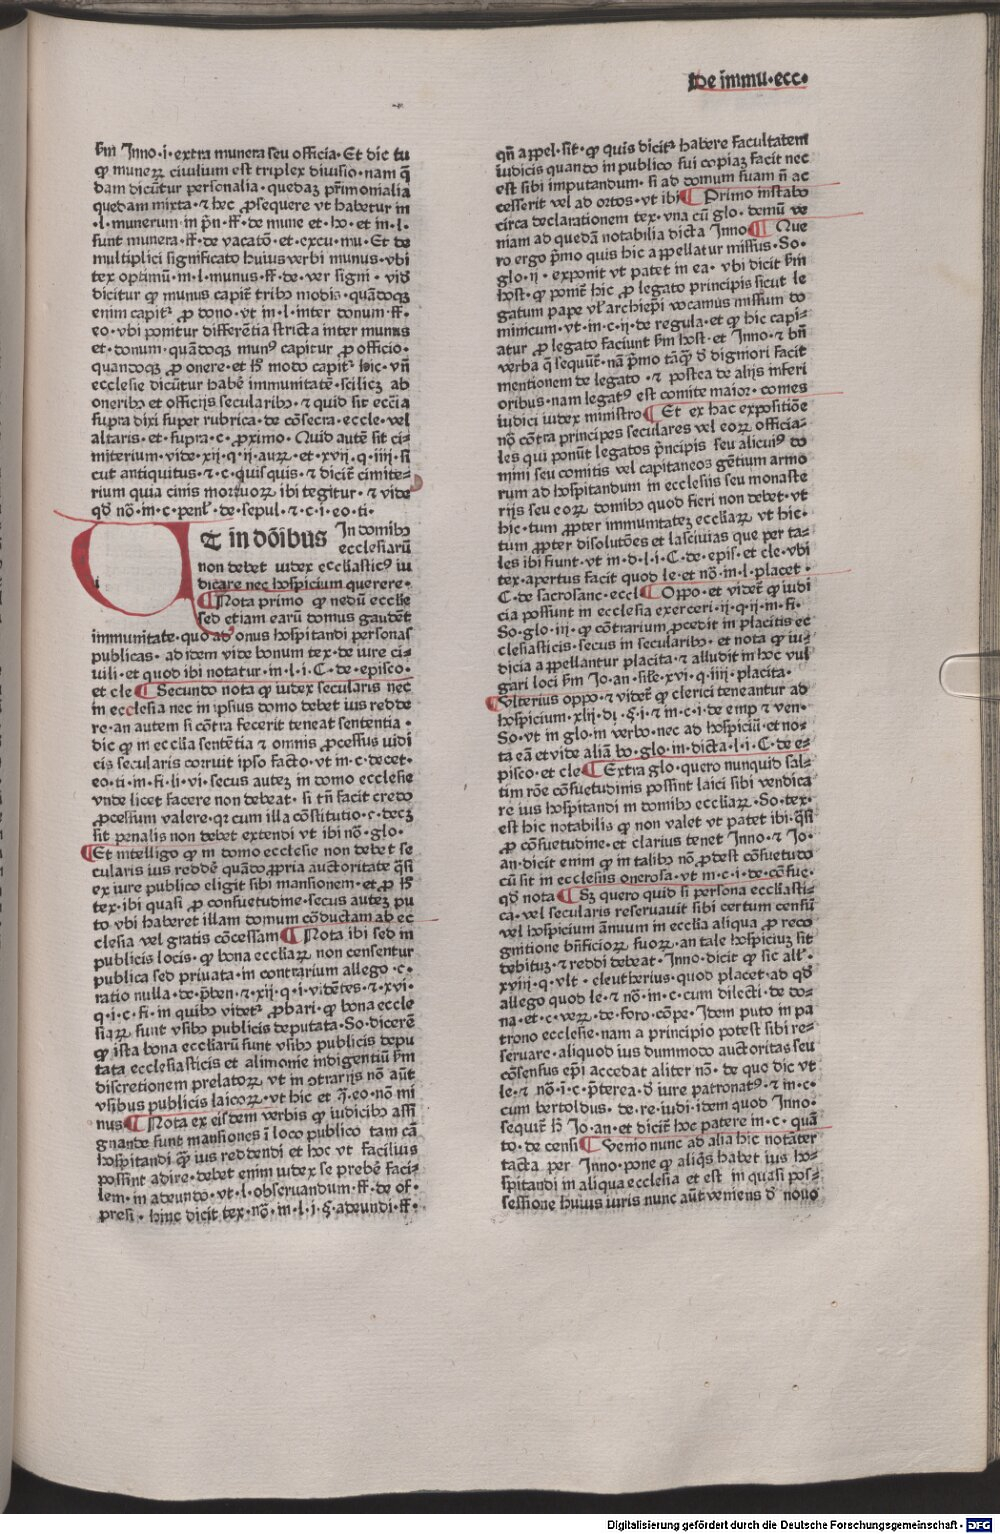 De immu·ecc·
fm Inno·i·extra munera seu officia·Et dic tu
ꝙ muneꝝ ciuilium est triplex diuisio·nam q̄
dam dicūtur personalia·quedaꝫ pr̄imonialia
quedam mixta·⁊ hec ꝓsequere vt habetur in
·l·munerum·in pn̄·ff·de mune et·ho·et in·l·
sunt munera·ff·de vacatō·et·excu·mu·Et de
multiplici significato huius verbi munus·vbi
tex optimū·in·l·munus·ff·de·ver signi·
dicitur ꝙ munus capit᷑ tribꝰ modis·quādoqꝫ
enim capit᷑ ꝓ dono·vt in·l·inter donum·ff·
eo·vbi ponitur differētia stricta inter munus
et·donum·quādoqꝫ munꝰ capitur ꝓ officio·
quandoqꝫ ꝓ onere·et hͦ modo capit᷑ hic·vn̄
ecclesie dicūtur habē immunitatē·scilicꝫ ab
oneribꝰ et officijs secularibꝰ·⁊ quid sit ecc̄ia
supra dixi super rubrica·de cōsecra·eccle·vel
altaris·et·supra·c·ꝓximo·Quid autē sit ci-
miterium·vide·xij·q·ij·auꝝ·et·xvij·q·iiij·si
cut antiquitus·⁊·c·quisquis·⁊ dicit᷑ cimite-
rium quia cinis mortuoꝝ ibi tegitur·⁊ vide
qd̄ nō·in·c·penl̄·de·sepul·⁊·c·i·eo·ti·
T in dōibus In domibꝰ
ecclesiarū
non debet iudex ecclīasticꝰ iu
dicare nec hospicium querere·
Nota primo ꝙ nedū ecclīe
sed etiam earū domus gaudēt
immunitate·quo ad onus hospitandi personas
publicas·ad idem vide bonum tex·de iure ci-
uili·et quod ibi notatur·in·l·i·C·de·episco·
et cle Secundo nota ꝙ iudex secularis nec
in ecclesia nec in ipsius domo debet ius redde
re·an autem si cōtra fecerit teneat sententia·
dic ꝙ in ecclīa sentētia ⁊ omnis ꝓcessus iudi
cis secularis corruit ipso facto·vt in·c·decet·
eo·ti·in·fi·li·vi·secus auteꝫ in domo ecclesie
vnde licet facere non debeat·si tn̄ facit credo
ꝓcessum valere·qꝛ cum illa cōstitutio·c·decꝫ
sit penalis non debet extendi vt ibi nō·glo·
Et intelligo ꝙ in domo ecclesie non debet se
cularis ius reddē quādo ꝓpria auctoritate q̄si
ex iure publico eligit sibi mansionem·et·ꝓ hͦ
tex·ibi quasi ꝓ consuetudine·secus auteꝫ pu
to vbi haberet illam domum cōductam ab ec
clesia vel gratis cōcessam Nota ibi sed in
publicis locis·ꝙ bona ecclīaꝝ non censentur
publica sed priuata·in contrarium allego·c·
ratio nulla·de·p̄ben·⁊·xij·q·i·vidētes·⁊·xvi·
q·i·c·fi·in quibꝰ videt᷑ ꝓbari·ꝙ bona eccle
siaꝝ sunt vsibꝰ publicis deputata·So·dicerē
ꝙ ista bona ecclīarū sunt vsibꝰ publicis depu
tata ecclesiasticis et alimonie indigentiū fm
discretionem prelatoꝝ vt in ꝯtrarijs nō aūt
vsibus publicis laicoꝝ·vt hic et q̄·eo·nō mi
nus Nota ex eisdem verbis ꝙ iudicibꝰ assi
gnande sunt mansiones ī loco publico tam cā
hospitandi ꝙ̄ ius reddendi et hoc vt facilius
possint adire·debet enim iudex se prebē faci-
lem·in adeundo·vt·l·obseruandum·ff·de of·
presi·hinc dicit tex·nō·in·l·i·§·adeundi·ff·
qn̄ appel·sit·ꝙ quis dicit᷑ habere facultatem
iudicis quando in publico sui copiaꝫ facit nec
est sibi imputandum·si ad domum suam n̄ ac
cesserit vel ad ortos·vt ibi Primo instabo
circa declarationem tex·vna cū glo·demū ve
niam ad quedā notabilia dicta Inno Que
ro ergo p̄mo quis hic appellatur missus·So·
glo·ij·exponit vt patet in ea·vbi dicit fm
host·ꝙ ponit᷑ hic ꝓ legato principis sicut le
gatum pape vl̄ archiep̄i vocamus missum do
minicum·vt·in·c·ij·de regula·et ꝙ hic capi-
atur ꝓ legato faciunt fm host·et Inno·⁊ bn̄
verba q̄ sequūt᷑·nā p̄mo tāꝙ̄ d̄ digniori facit
mentionem de legato·⁊ postea de alijs inferi
oribus·nam legatꝰ est comite maior·comes
iudici iudex ministro Et ex hac expositiōe
nō cōtra principes seculares vel eoꝝ officia-
les qui ponūt legatos p̄ncipis seu alicuiꝰ do
mini seu comitis vel capitaneos gētium armo
rum ad hospitandum in ecclesijs seu monaste
rijs seu eoꝝ domibꝰ quod fieri non debet·vt
hic·tum ꝓpter immunitateꝫ ecclīaꝝ vt hic·
tum ꝓpter disolutōes et lasciuias que per ta-
les ibi fiunt·vt in·d·l·i·C·de·epis·et cle·vbi
tex·apertus facit quod le·et nō·in·l·placet·
C·de sacrosanc·eccl Oppo·et videt᷑ ꝙ iudi
cia possunt in ecclesia exerceri·ij·q·ij·in·fi·
So·glo·iij·ꝙ cōtrarium ꝓcedit in placitis ec
clesiasticis·secus in secularibꝰ·et nota ꝙ iu-
dicia appellantur placita·⁊ alludit in hoc vul
gari loci fm Jo·an·sil̄e·xvi·q·iiij·placita·
Vlterius oppo·⁊ videt᷑ ꝙ clerici teneantur ad
hospicium·xlij·di·§·i·⁊ in·c·i·de emp ⁊ ven·
So·vt in glo·in verbo·nec ad hospiciū·et no-
ta eā et vide aliā bo·glo·in·dicta·l·i·C·de·e-
pisco·et cle Extra glo·quero nunquid sal-
tim rōe cōsuetudinis possint laici sibi vendica
re ius hospitandi in domibꝰ ecclīaꝝ·So·tex·
est hic notabilis ꝙ non valet vt patet ibi·q̄si
ꝓ cōsuetudine·et clarius tenet Inno·⁊ Jo·
an·dicit enim ꝙ in talibꝰ nō ꝓdest cōsuetudo
cū sit in ecclesijs onerosa·vt in·c·i·de·cōsue·
qd̄ nota Sꝫ quero quid si persona ecclīasti-
ca·vel secularis reseruauit sibi certum censū
vel hospicium ānuum in ecclīa aliqua ꝓ reco
gnitione bn̄ficioꝝ suoꝝ·an tale hospiciuꝫ sit
debituꝫ·⁊ reddi debeat·Inno·dicit ꝙ sic all᷑·
xviij·q·vlt·eleutherius·quod placet·ad qd̄
allego quod le·⁊ nō·in·c·cum dilecti·de do-
na·et·c·veꝝ·de·foro·cōpe·Idem puto in pa
trono ecclesie·nam a principio potest sibi re-
seruare·aliquod ius dummodo auctoritas seu
cōsensus ep̄i accedat aliter nō·de quo dic vt
le·⁊ nō·i·c·p̄terea·d̄ iure patronatꝰ·⁊ in·c·
cum bertoldus·de·re·iudi·idem quod Inno·
sequit᷑ hͦ Jo·an·et dicit᷑ hoc patere in·c·quā
to·de censi Uenio nunc ad alia hic notāter
tacta per Inno·pone ꝙ aliqs̄ habet ius ho-
spitandi in aliqua ecclesia et est in quasi pos-
sessione huius iuris nunc aūt veniens d̄ nouo
Digitalisierung gefördert durch die Deutsche Forschungsgemeinschaft - DFG